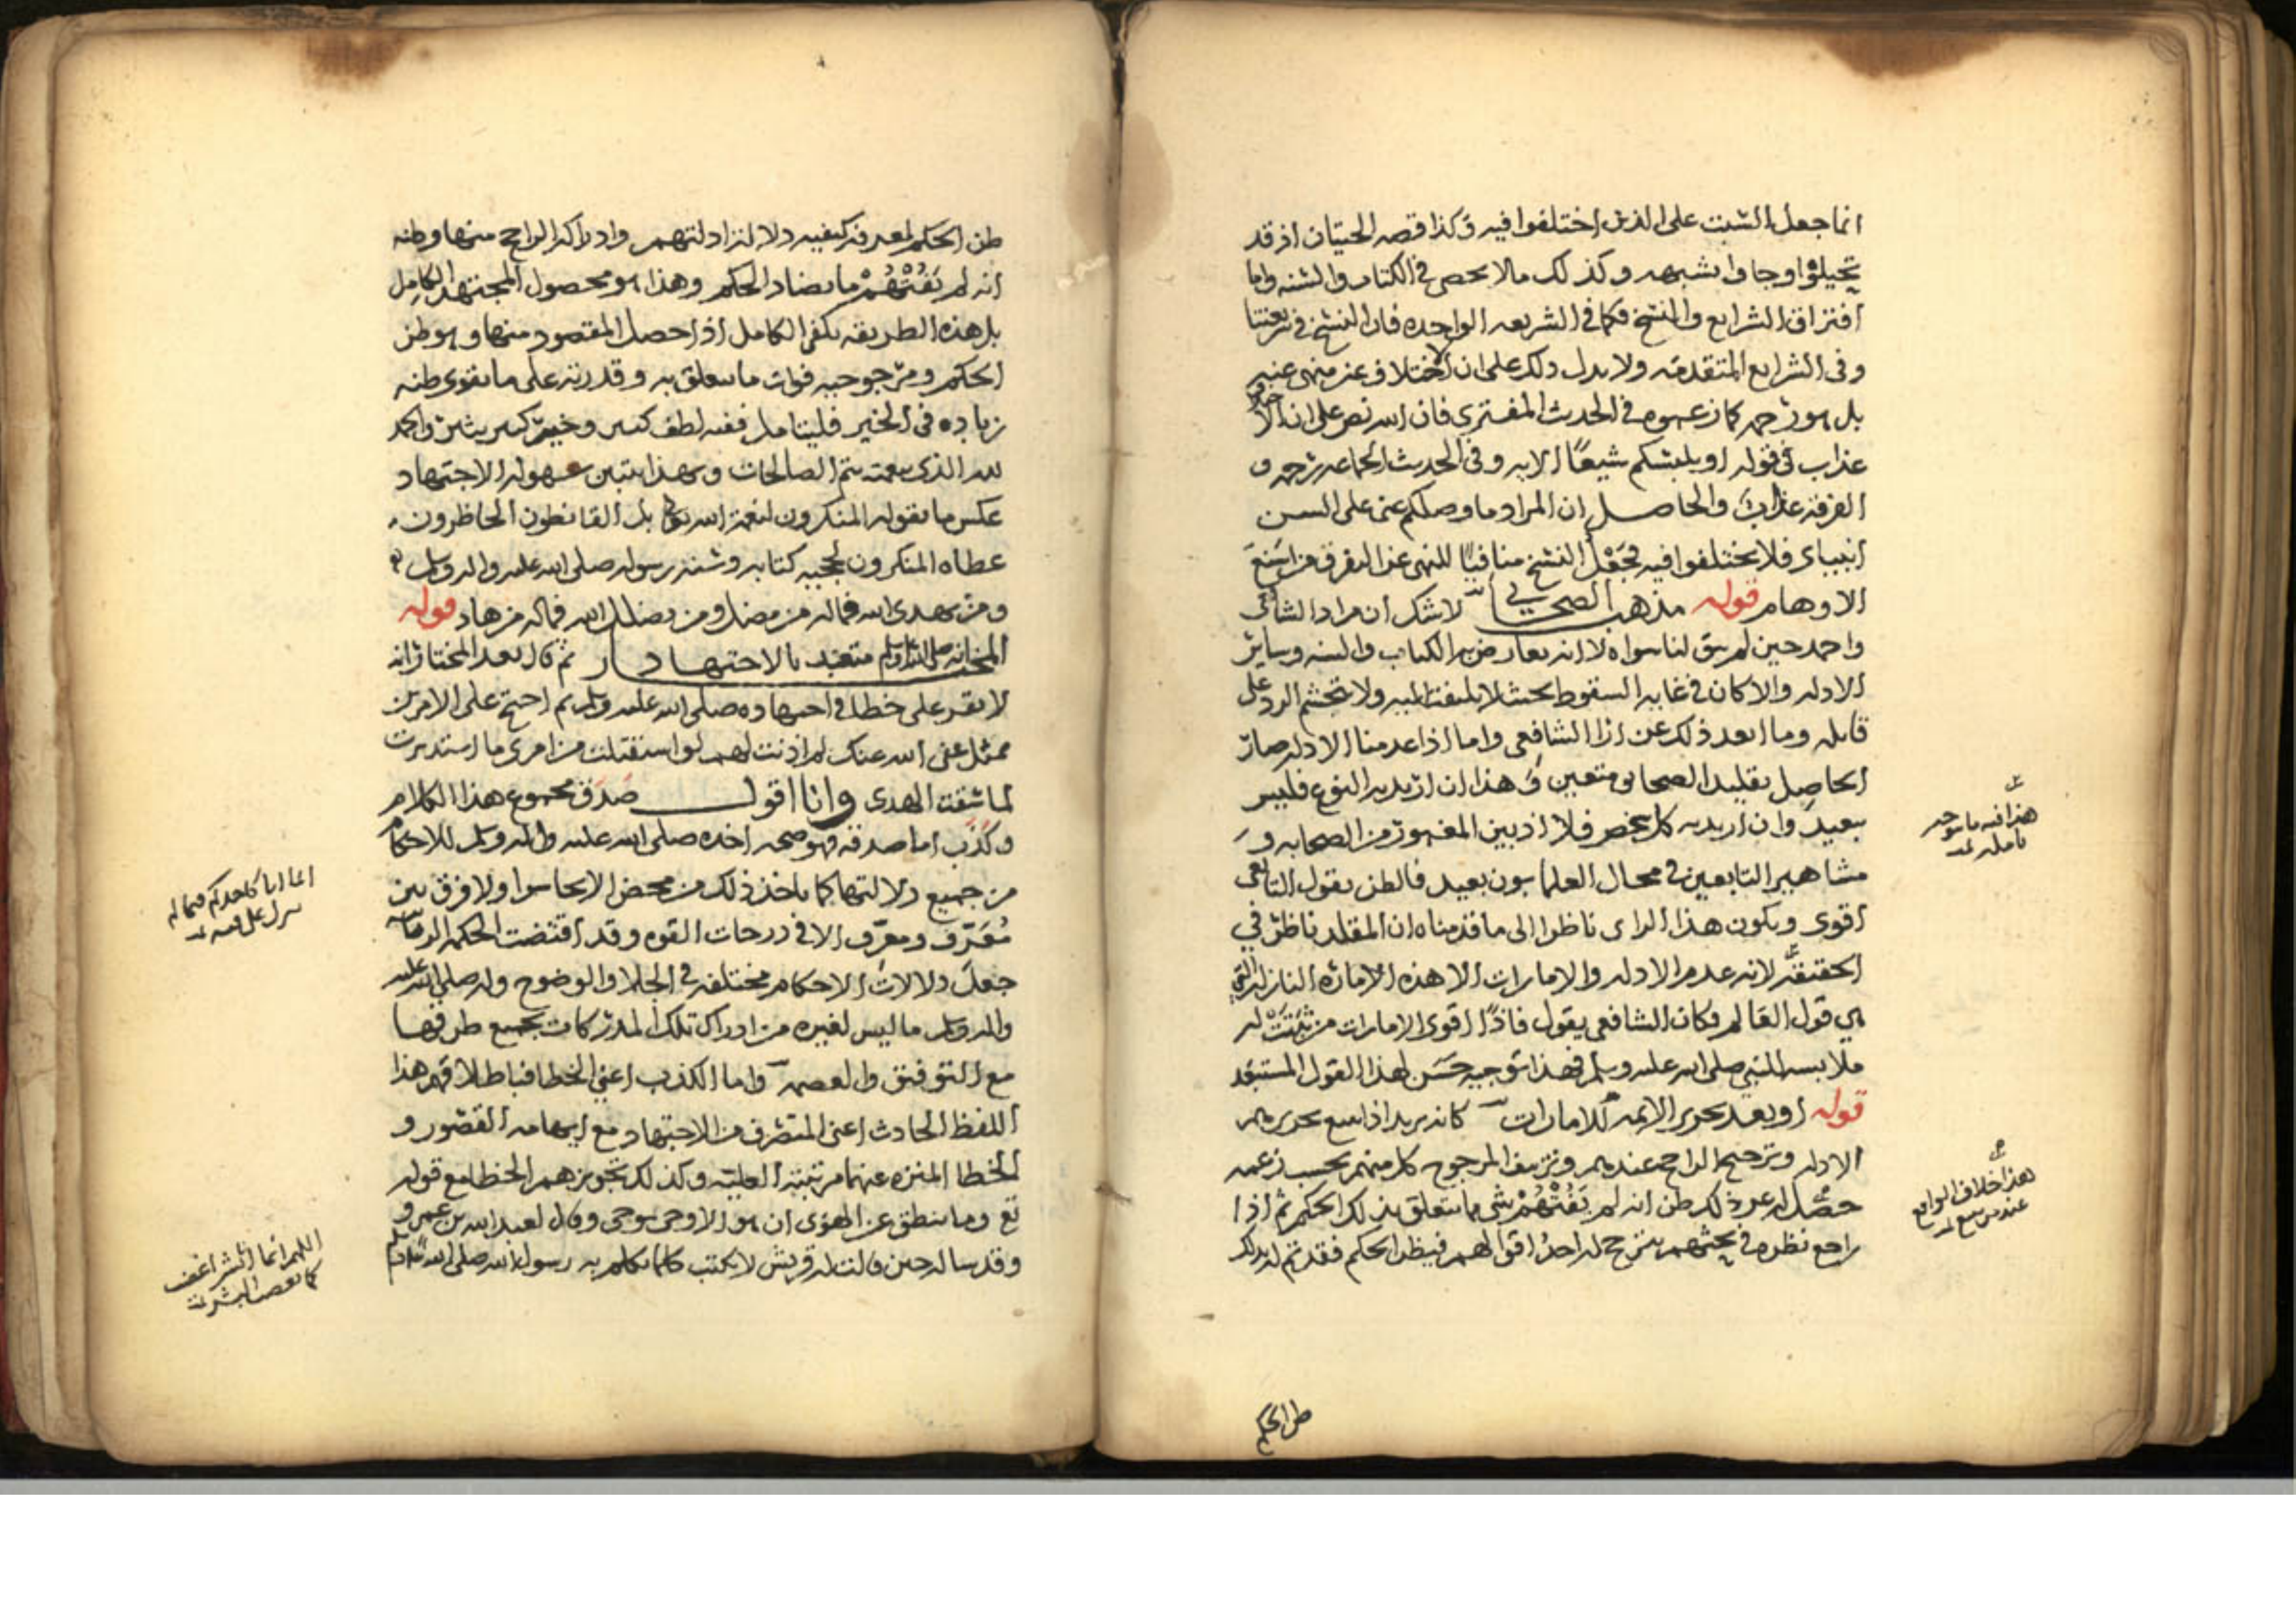 انما جعل السبت على الذين اختلفوا فيه وكذا قصه الحيتان اذ قد
تحيلوا وجاوا بشبهه وكذلك مالا يحصى في الكتاب والسنه واما
افتراق الشرايع والنسخ فكما في الشريعه الواحده فان النسخ في شريعتنا
وفى الشرايع المتقدمه ولا يدل ذلك على ان الاختلاف غير منهى عنه
بل هو رحمه كما زعموه في الحديث المفترى فان الله نص على ان الا
عذاب في قوله او يلبسكم شيعًا الايه وفى الحديث الجماعه رحمه و
الفرقة عذاب والحاصل ان المراد ما وصلكم عنى على السن
انبياى فلا تختلفوا فيه فجعل النسخ منافيًا للنهى عن التفرق من اشنع
الاوهام قوله مذهب الصحابي لا شك ان مراد الشافعى
واحمد حين لم يبق لنا سواه لا انه يعارض به الكتاب والسنه وساير
الادله والا كان في غايه السقوط بحيث لا يلتفت اليه ولا يتجشم الرد على
قايله وما ابعد ذلك عن ارا الشافعى واما اذا عدمنا الادله صار
الحاصل تقليد الصحابى متعين وهذا ان اريد به النوع فليس
ببعيد وان اريد به كل شخص فلا اذ بين المغمور من الصحابه و
مشاهير التابعين في محال العلم بون بعيد فالظن بقول التابعى
اقوى ويكون هذا الراى ناظرا الى ما قدمناه ان المقلد ناظر في
الحقيقة لانه عدم الادله والامارات الا هذه الاماره النازله التى
هي قول العالم وكان الشافعى يقول فاذًا اقوى الامارات من ثبتت له
ملابسه النبي صلى الله عليه وسلم فهذا توجيه حسن لهذا القول المستبعد
قوله او يعد تحرى الايمه للامارات كانه يريد اذا تتبع تحريهم
الادله وترجيح الراجح عندهم وتزييف المرجوح كل منهم بحسب زعمه
حصل له عند ذلك ظن انه لم يفتهم شى مما يتعلق بذلك الحكم ثم اذا
راجع نظره في بحثهم يترجح له احد اقوالهم فيظن الحكم فقد تم له بذلك
هذا فيه ما يوجد
تامله تمت
هذا خلاف الواقع
عند من تتبع تمت
ظن الحكم
ظن الحكم لمعرفة كيفيه دلالة ادلتهم وادراك الراجح منها وظنه
انه لم يفتهم ما يضاد الحكم وهذا هو محصول المجتهد الكامل
بل هذه الطريقه تكفى الكامل اذا حصل المقصود منها وهو ظن
الحكم ومرجوحيه فوات ما يتعلق به وقدرته على ما يقوى ظنه
زياده في الخير فليتامل ففيه لطف كبير وخير كبير والحمد
لله الذى بنعمته تتم الصالحات وبهذا يتبين سهوله الاجتهاد
عكس ما يقوله المنكرون لنعمة الله تعالى بل القانطون الحاظرون
عطاه المنكرون لحجيه كتابه وسنه رسوله صلى الله عليه واله وسلم
ومن يهدى الله فماله من مضل ومن يضلل الله فماله من هاد قوله
المختار انه صلى الله عليه وسلم متعبد بالاجتهاد ثم قال بعد المختار انه
لا يقر على خطا في اجتهاده صلى الله عليه وسلم ثم احتج على الامرين
بمثل عفى الله عنك لم اذنت لهم لو استقبلت من امرى ما استدبرت
لما سقت الهدى وانا اقول صدق مجموع هذا الكلام
وكذب اما صدقه فهو صحه اخذه صلى الله عليه واله وسلم للاحكام
من جميع دلالتها كما ناخذ ذلك من محض الايحا سوا ولا فرق بين
معرَّف ومعرَّف الا في درجات القوه وقد اقتضت الحكمه الربانيه
جعل دلالات الاحكام مختلفه في الجلا والوضوح وله صلى الله عليه
واله وسلم ما ليس لغيره من ادراك تلك المدركات بجميع طرقها
مع التوفيق والعصمه واما الكذب اعنى الخطا فباطلاقهم هذا
اللفظ الحادث اعنى المتصرف من الاجتهاد مع ايهامه القصور و
الخطا المنزه عنهما مرتبته العليه وكذلك تجويزهم الخطا مع قوله
تع وما ينطق عن الهوى ان هو الا وحى يوحى وقال لعبد الله بن عمرو
وقد ساله حين قالت له قريش لا تكتب كلما تكلم به رسول الله صلى الله عليه وسلم
انما انا كاحدكم فيما لم
ينزل على فيه تمت
اللهم انما انا بشر اغضب
كما يغضب البشر تمت